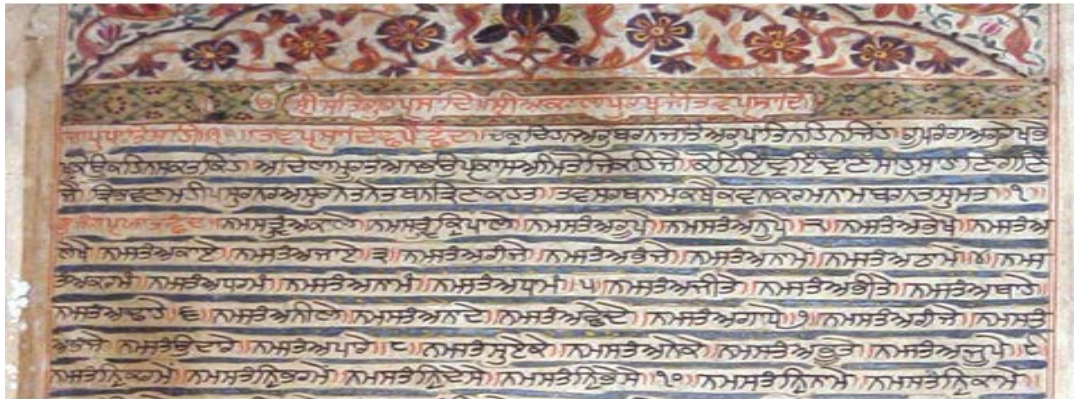 ੧ਓ ਸ੍ਰੀ ਸਤਿਗੁਰਪ੍ਰਸਾਦਿ॥ ਸ੍ਰੀਅਕਾਲਪੁਰਖ
ਜਾਪੁ ਪਾਤਿਸਾਹੀ ੧੦॥ ਤਵਪ੍ਰਸਾਦਿ ਛਪੈਛੰਦ॥ ਚਕ੍ਰਚਿਹਨਅਰੁਬਰਨਜਾਤਿਅਰੁਪਾਤਿਨਹਿਨਜਿਹ॥ ਰੂਪਰੰਗਅਰੁਰੇਖਭੇ
ਕੋਊਕਹਿਨਸਕਤਕਿਹ॥ ਅਚਲਮੂਰਤਿਅਨਭਉਪ੍ਰਕਾਸਅਮਿਤੋਜਿਕਹਿਜੈ॥ ਕੋਟਿਇੰਦ੍ਰਇੰਦ੍ਰਾਣਸਾਹੁਸਾਹਾਣਿਗਣਿ
ਜੈ॥ ਤ੍ਰਿਭਵਣਮਹੀਪਸੁਰਨਰਅਸੁਰਨੇਤਨੇਤਬਨਤ੍ਰਿਣਕਹਤ॥ ਤਵਸਰਬਨਾਮਕਥੈਕਵਨਕਰਮਨਾਮਬਰਨਤਸੁਮਤ॥੧॥
ਭੁਜੰਗਪ੍ਰਯਾਤਛੰਦ॥ ਨਮਸਤ੍ਵੰਅਕਾਲੇ॥ ਨਮਸਤ੍ਵੰਕ੍ਰਿਪਾਲੇ॥ ਨਮਸਤੰਅਰੂਪੇ॥ ਨਮਸਤੰਅਨੂਪੇ॥੨॥ ਨਮਸਤੰਅਭੇਖੇ॥ ਨਮਸਤੰਅ
ਲੇਖੇ॥ ਨਮਸਤੰਅਕਾਏ॥ ਨਮਸਤੰਅਜਾਏ॥੩॥ ਨਮਸਤੰਅਗੰਜੇ॥ ਨਮਸਤੰਅਭੰਜੇ॥ ਨਮਸਤੰਅਨਾਮੇ॥ ਨਮਸਤੰਅਠਾਮੇ॥੪॥ ਨਮਸ
ਤੰਅਕਰਮੰ॥ ਨਮਸਤੰਅਧਰਮੰ॥ ਨਮਸਤੰਅਨਾਮੰ॥ ਨਮਸਤੰਅਧਾਮੰ॥੫॥ ਨਮਸਤੰਅਜੀਤੇ॥ ਨਮਸਤੰਅਭੀਤੇ॥ ਨਮਸਤੰਅਬਾਹੇ॥
ਨਮਸਤੰਅਢਾਹੇ॥੬॥ ਨਮਸਤੰਅਨੀਲੇ॥ ਨਮਸਤੰਅਨਾਦੇ॥ ਨਮਸਤੰਅਛੇਦੇ॥ ਨਮਸਤੰਅਗਾਧੇ॥੭॥ ਨਮਸਤੰਅਗੰਜੇ॥ ਨਮਸਤੰ
ਅਭੰਜੇ॥ ਨਮਸਤੰਉਦਾਰੇ॥ ਨਮਸਤੰਅਪਾਰੇ॥੮॥ ਨਮਸਤੰਸੁਏਕੈ॥ ਨਮਸਤੰਅਨੇਕੈ॥ ਨਮਸਤੰਅਭੂਤੇ॥ ਨਮਸਤੰਅਜੂਪੇ॥੯॥
ਨਮਸਤੰਨ੍ਰਿਕਰਮੇ॥ ਨਮਸਤੰਨ੍ਰਿਭਰਮੇ॥ ਨਮਸਤੰਨ੍ਰਿਦੇਸੇ॥ ਨਮਸਤੰਨ੍ਰਿਭੇਸੇ॥੧੦॥ ਨਮਸਤੰਨ੍ਰਿਨਾਮੇ॥ ਨਮਸਤੰਨ੍ਰਿਕਾਮੇ॥